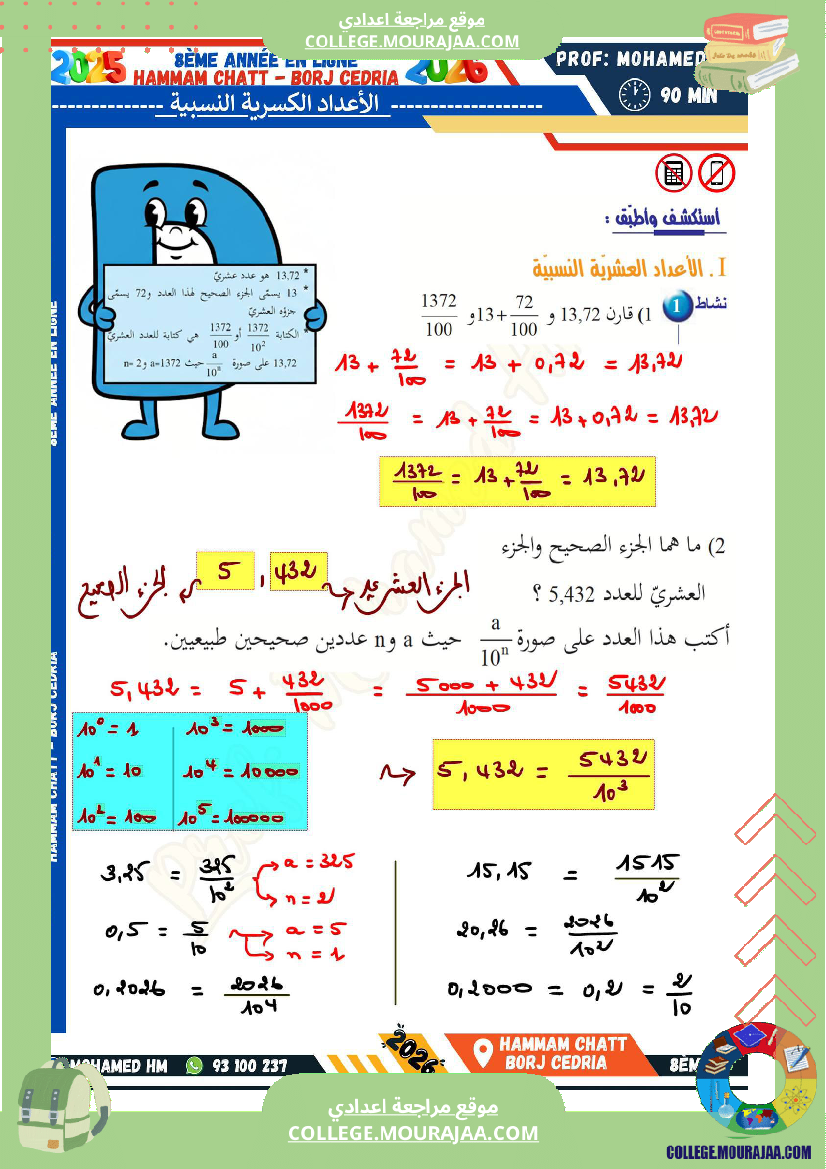 موقع مراجعة اعدادي
COLLEGE.MOURAJAA.COM
2025 8ÈME ANNÉE EN LIGNE 2026
HAMMAM CHATT - BORJ CEDRIA
PROF: MOHAMED
90 MIN
الأعداد الكسرية النسبية
أستكشف وأطبّق :
I. الأعداد العشريّة النسبيّة
* 13,72 هو عدد عشريّ
* 13 يسمّى الجزء الصحيح لهذا العدد و72 يسمّى
جزؤه العشريّ
* الكتابة 1372/10² أو 1372/100 هي كتابة للعدد العشريّ
13,72 على صورة a/10ⁿ حيث a=1372 و n=2
نشاط 1 1) قارن 13,72 و 13+72/100 و 1372/100
13 + 72/100 = 13 + 0,72 = 13,72
1372/100 = 13 + 72/100 = 13 + 0,72 = 13,72
1372/100 = 13 + 72/100 = 13,72
2) ما هما الجزء الصحيح والجزء
العشريّ للعدد 5,432 ؟
الجزء الصحيح 5 , 432 الجزء العشري
أكتب هذا العدد على صورة a/10ⁿ حيث a و n عددين صحيحين طبيعيين.
5,432 = 5 + 432/1000 = 5000 + 432/1000 = 5432/1000
10⁰ = 1 10³ = 1000
10¹ = 10 10⁴ = 10000
10² = 100 10⁵ = 100000
5,432 = 5432/10³
3,25 = 325/10² a = 325
n = 2
0,5 = 5/10 a = 5
n = 1
0,2026 = 2026/10⁴
15,15 = 1515/10²
20,26 = 2026/10²
0,2000 = 0,2 = 2/10
8ÈME ANNÉE EN LIGNE
HAMMAM CHATT - BORJ CEDRIA
MOHAMED HM 93 100 237
2026
HAMMAM CHATT
BORJ CEDRIA
8ÈM
موقع مراجعة اعدادي
COLLEGE.MOURAJAA.COM
COLLEGE.MOURAJAA.COM